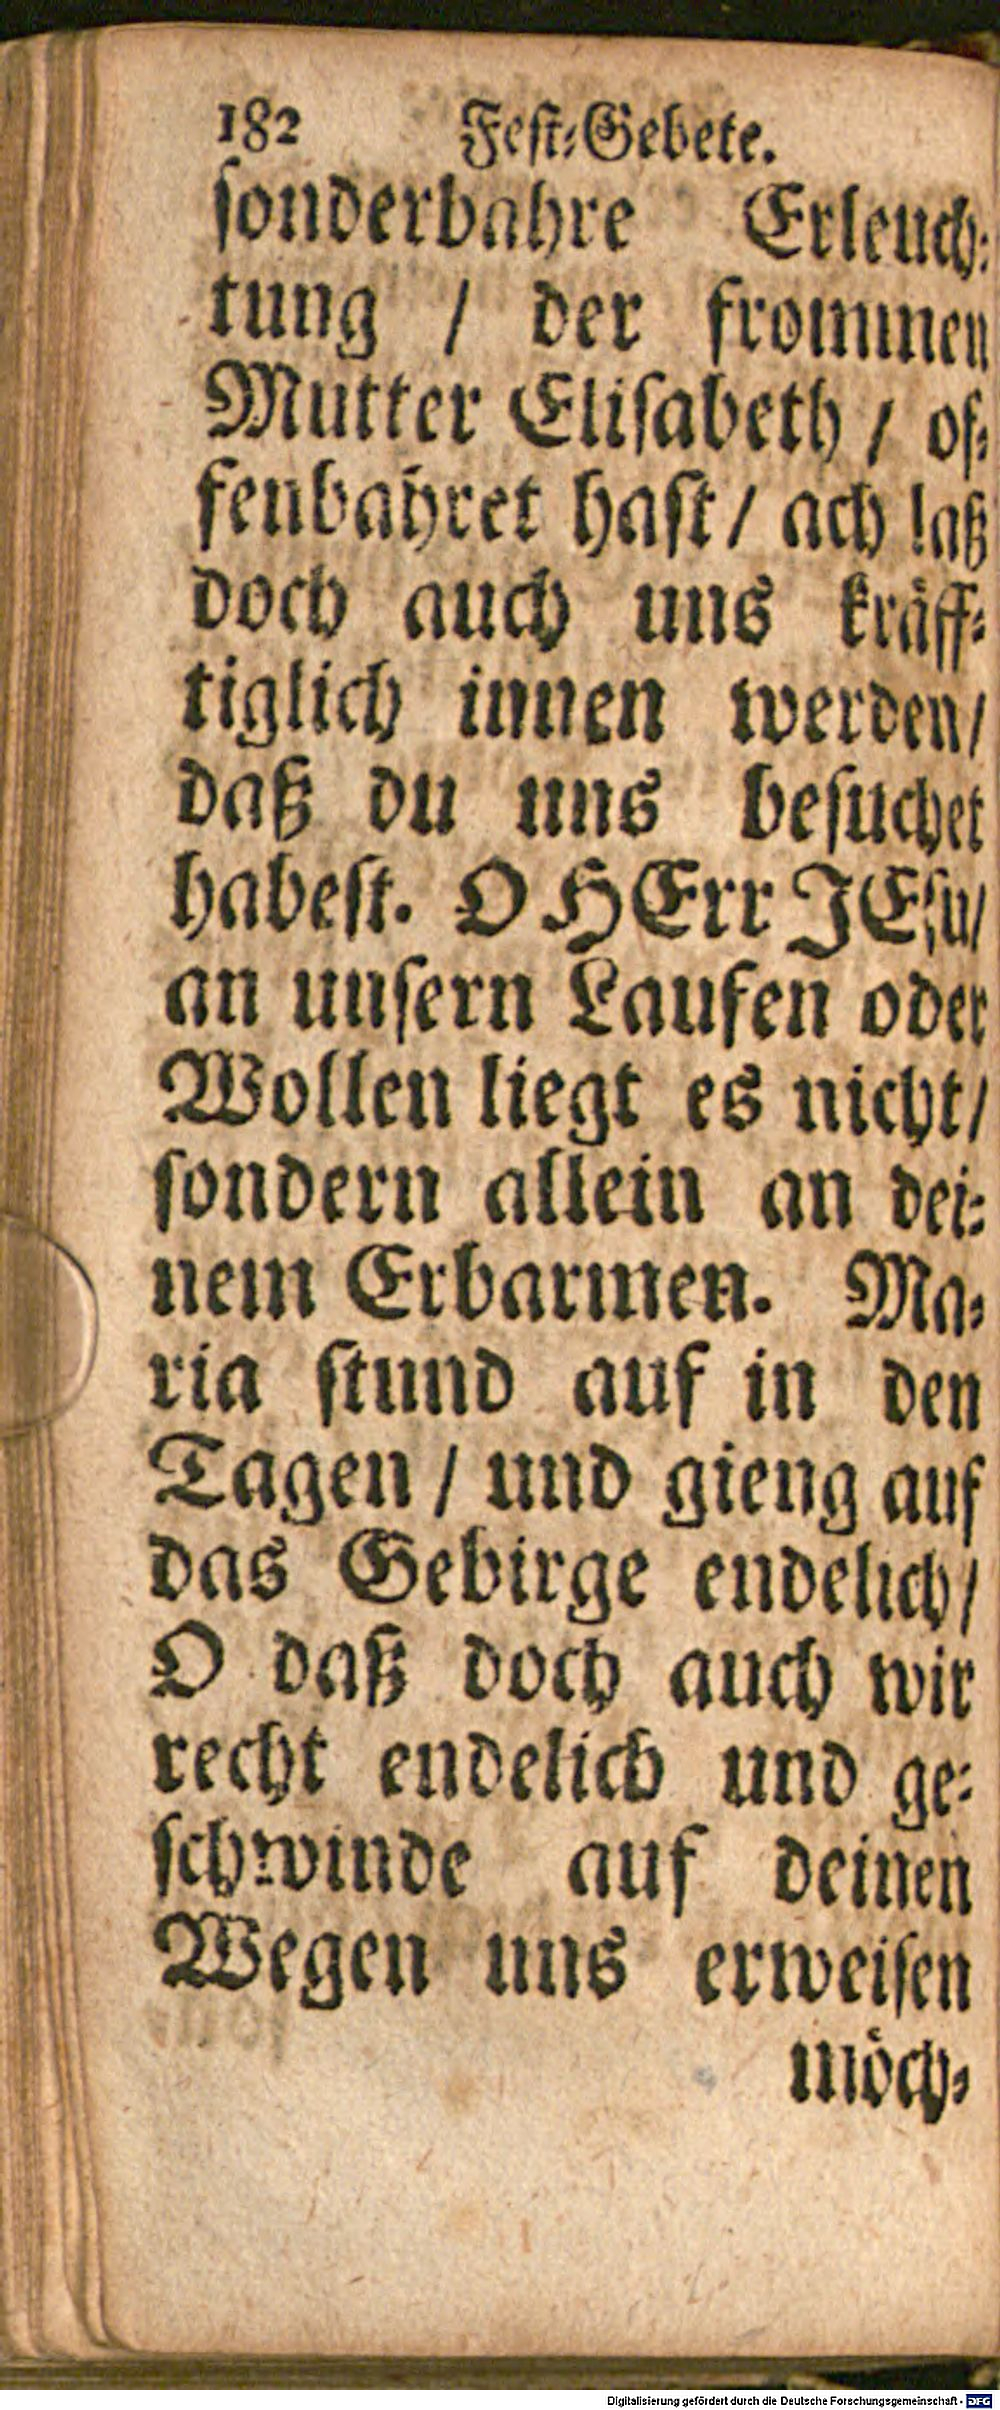 182 Fest-Gebete.
sonderbahre Erleuch-
tung / der frommen
Mutter Elisabeth / of-
fenbahret hast / ach laß
doch auch uns kräff-
tiglich innen werden /
daß du uns besuchet
habest. O HErr JEsu /
an unsern Laufen oder
Wollen liegt es nicht /
sondern allein an dei-
nem Erbarmen. Ma-
ria stund auf in den
Tagen / und gieng auf
das Gebirge endelich /
O daß doch auch wir
recht endelich und ge-
schwinde auf deinen
Wegen uns erweisen
möch-
Digitalisierung gefördert durch die Deutsche Forschungsgemeinschaft - DFG